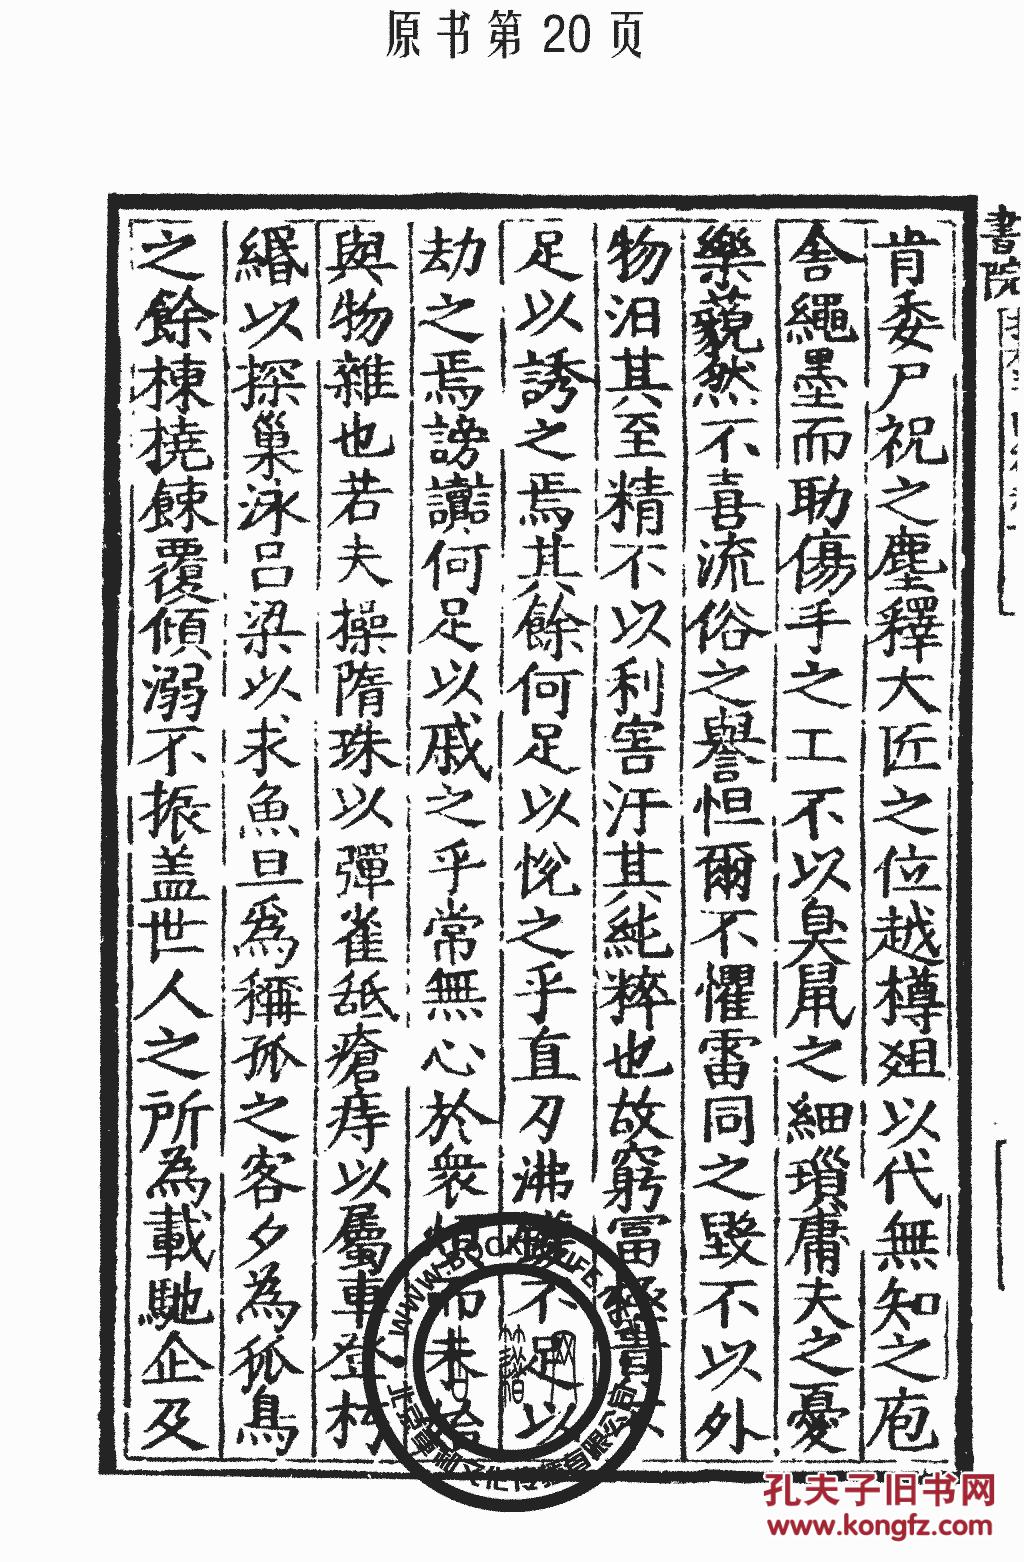 原书第20页
書院
肯委尸祝之塵釋大匠之位越樽俎以代無知之庖
舎繩墨而助傷手之工不以臭鼠之細瑣庸夫之憂
樂藐然不喜流俗之譽怛爾不懼雷同之毀不以外
物汩其至精不以利害汙其純粹也故窮富極貴
足以誘之焉其餘何足以恱之乎直刃沸鑊不足以
劫之焉謗讟何足以戚之乎常無心於衆煩而未始
與物雜也若夫操隋珠以彈雀舐痔以屬車登朽
緡以探巢泳吕梁以求魚旦爲稱孤之客夕為孤鳥
之餘棟撓餗覆傾溺不振盖世人之所為載馳企及
WWW.BOOK
北京
文化传播有限公司
孔夫子旧书网
www.kongfz.com